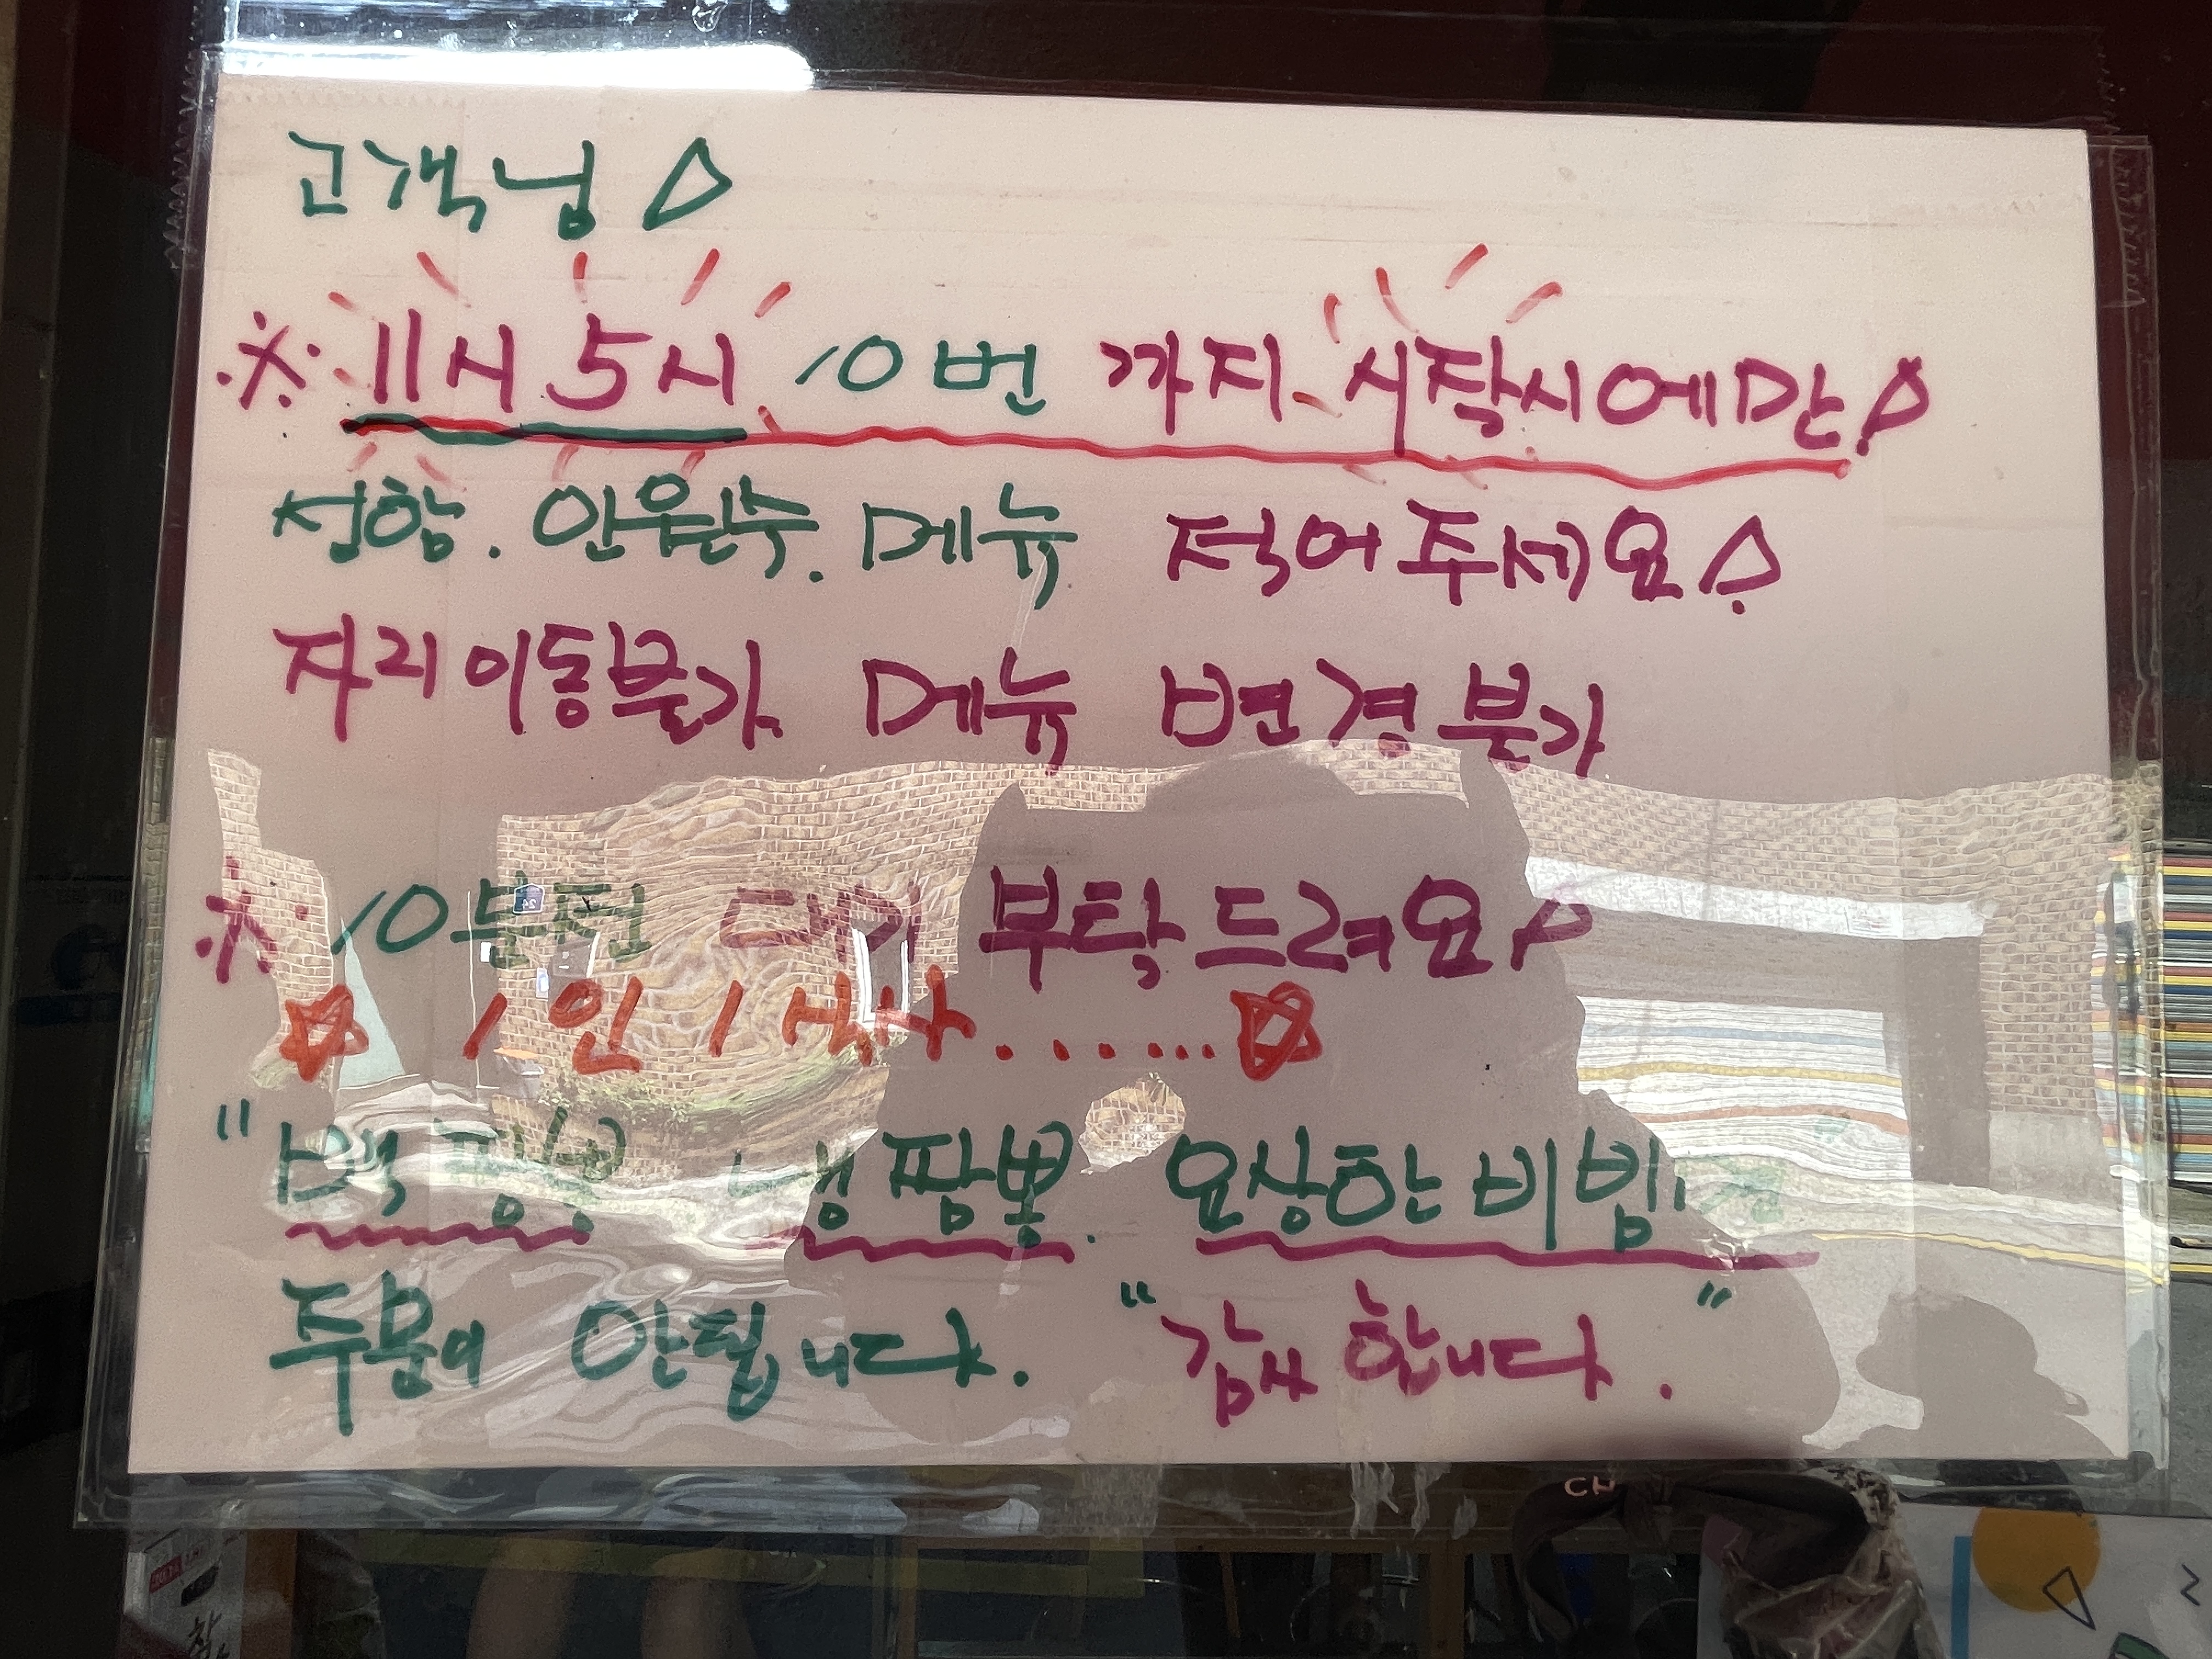 고객님!
※ 11시 5시 10번 까지 시작시에만!
성함. 인원수. 메뉴 적어주세요!
자리이동불가 메뉴 변경불가
※ 10분전 대기 부탁드려요!
☆ 1인 1식사......... ☆
"백짬뽕 냉짬뽕. 요상한비빔
주문이 안됩니다. "감사합니다."
CH